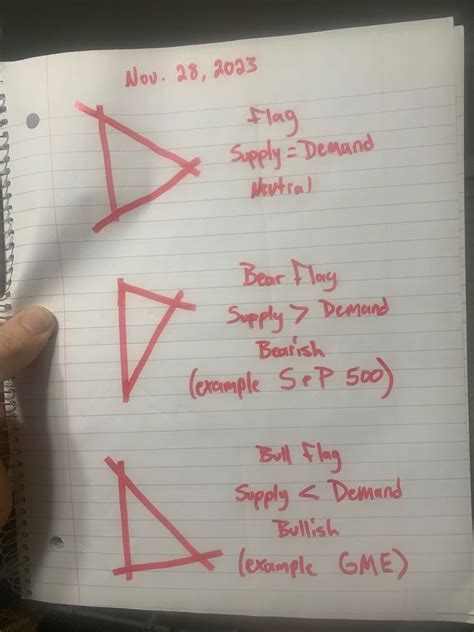 Nov. 28, 2023
Flag
Supply = Demand
Neutral
Bear Flag
Supply > Demand
Bearish
(example S&P 500)
Bull Flag
Supply < Demand
Bullish
(example GME)